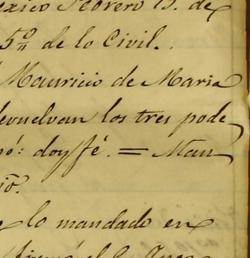 exico Febrero 15. de
5º de lo Civil.
Mauricio de Maria
devuelvan los tres pode
ó: doy fé. = Mau
io.
e lo mandado en